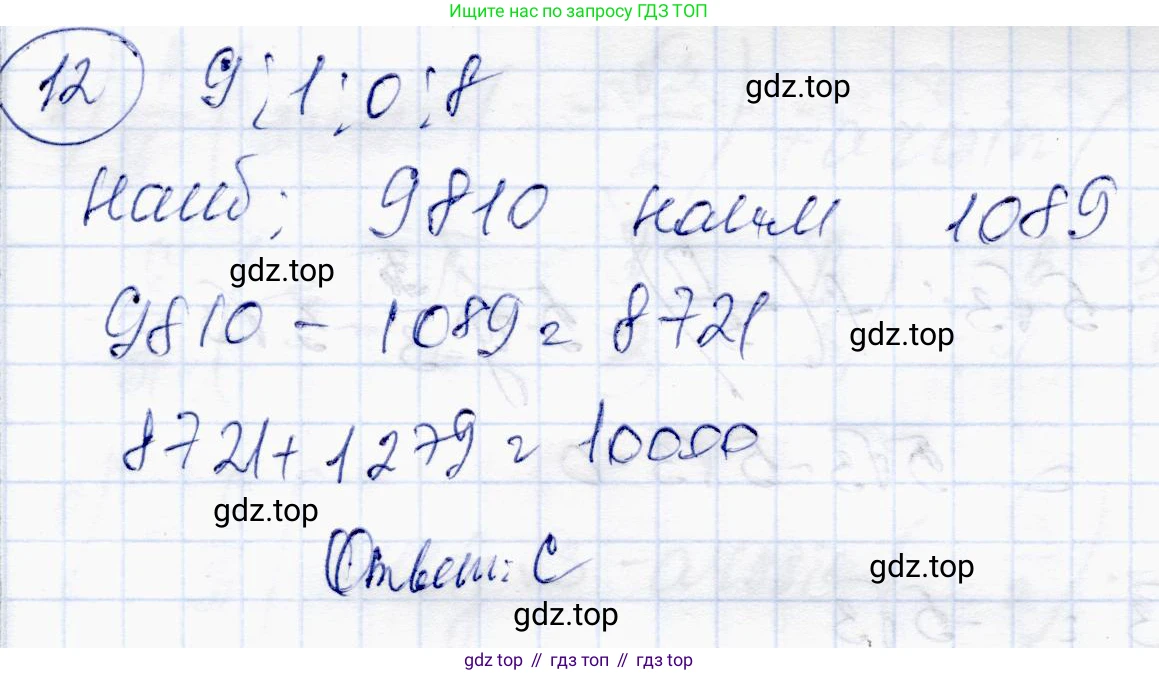 Ищите нас по запросу ГДЗ ТОП
12 9; 1; 0; 8
gdz.top
наиб; 9810 наим 1089
gdz.top
9810 - 1089 = 8721
gdz.top
8721 + 1279 = 10000
gdz.top
Ответ: C
gdz.top
gdz.top
gdz top // гдз топ // гдз top